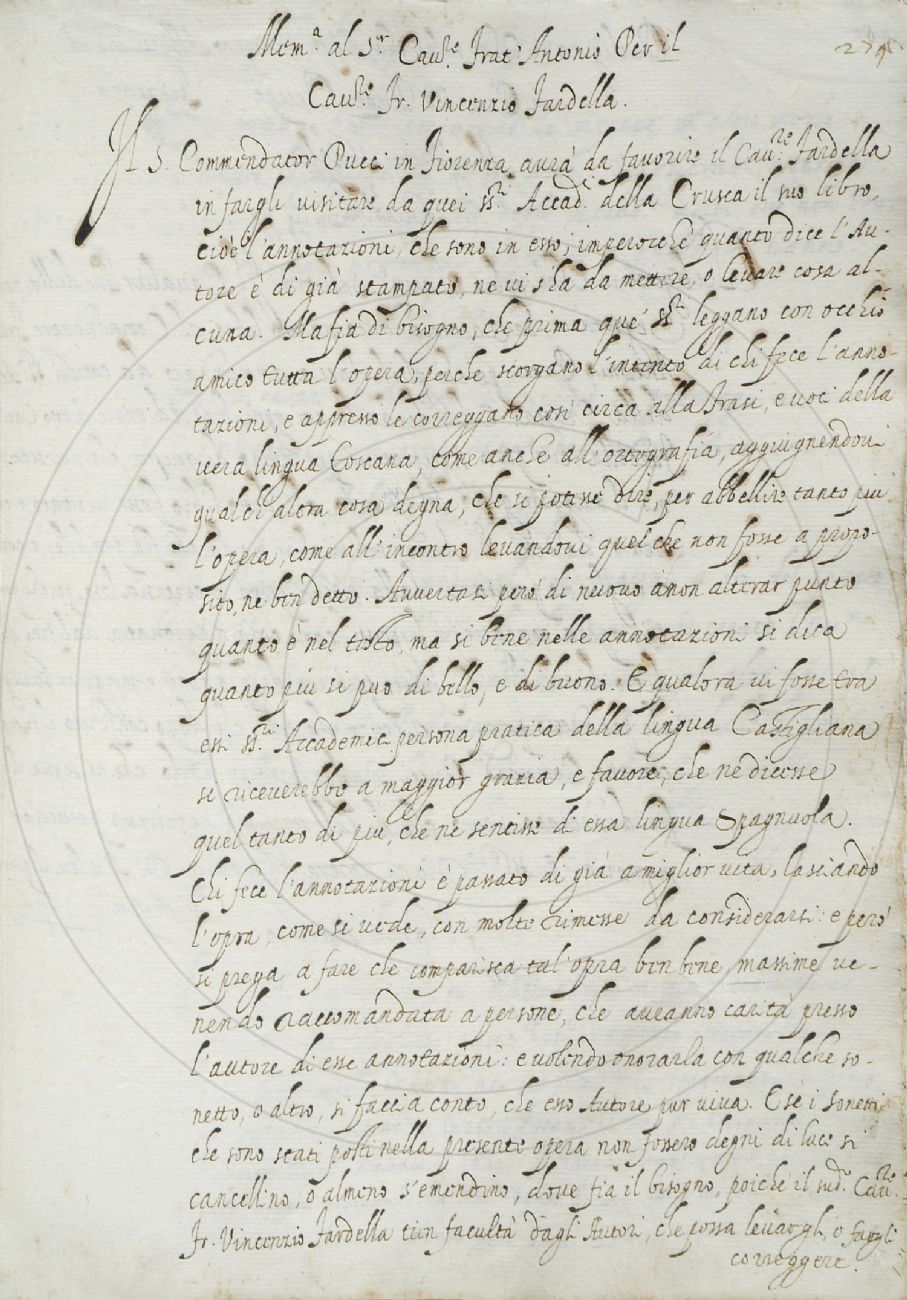 Mem.ª al S.r Cau.re Frat' Antonio Per il
Cau.re Fr. Vincenzio Fardella.
Il S. Commendator Pucci in Fiorenza aurà da favorire il Cau.re Fardella
in fargli visitare da quei SS.ri Accad.i della Crusca il suo libro,
cioè l'annotazioni, che sono in esso, imperochè quanto dice l'Au-
tore è di già stampato, ne vi s'hà da mettere, o levare cosa al-
cuna. Ma fia di bisogno, che prima que' SS.ri leggano con occhio
amico tutta l'opera, perche scorgano l'intento di chi fece l'anno-
tazioni, e appresso le correggano così circa alla frasi, e voci della
vera lingua Toscana, come anche all'ortografia, aggiugnendoui
qualch'altra cosa degna, che si potesse dire, per abbellire tanto più
l'opera, come all'incontro levandoui quel che non fosse a propo-
sito, ne ben detto. Avvertasi però di nuovo a non alterar punto
quanto è nel testo, ma si bene nelle annotazioni si dica
quanto più si può di bello, e di buono. E qualora vi fosse tra
essi SS.ri Accademici persona pratica della lingua Castigliana
si riceverebbe a maggior grazia, e favore, che ne dicesse
quel tanto di più, che ne sentisse di essa lingua Spagnuola.
Chi fece l'annotazioni è passato di già a miglior vita, lasciando
l'opra, come si vede, con molte rimesse da considerarsi: e però
si prega a fare che comparisca tal'opra ben bene, massime ve-
nendo raccomandata a persone, che auranno carità presso
l'autore di esse annotazioni: e volendo onorarla con qualche so-
netto, o altro, si faccia conto, che esso Autore pur viva. E se i sonetti
che sono stati posti nella presente opera non fossero degni di luce si
cancellino, o almeno s'emendino, dove fia il bisogno, poiche il sud.º Cau.re
Fr. Vincenzio Fardella tien facultà dagli Autori, che possa levargli, o fargli
correggere.